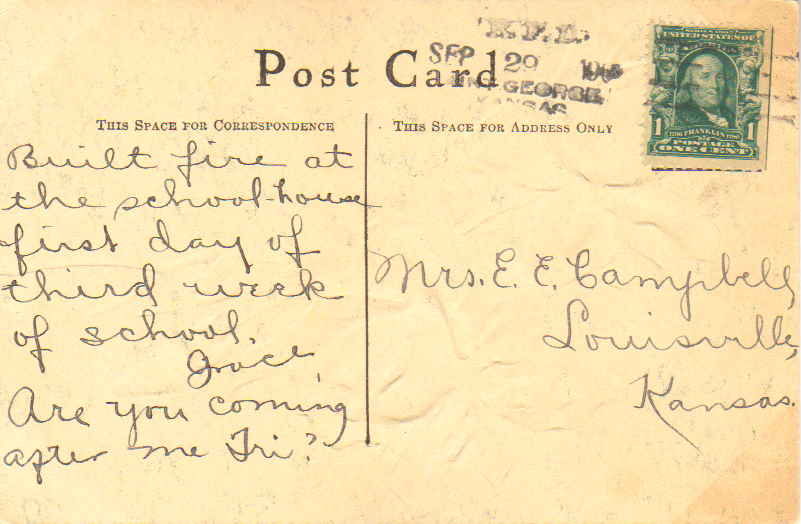 Post Card
R.F.D.
SEP 29
ST. GEORGE,
KANSAS
SERIES 1902
UNITED STATES OF
AMERICA
1
FRANKLIN
POSTAGE
ONE CENT
THIS SPACE FOR CORRESPONDENCE
THIS SPACE FOR ADDRESS ONLY
Built fire at
the school-house
first day of
third week
of school.
Grace
Are you coming
after me Fri?
Mrs. E. E. Campbell,
Louisville,
Kansas.